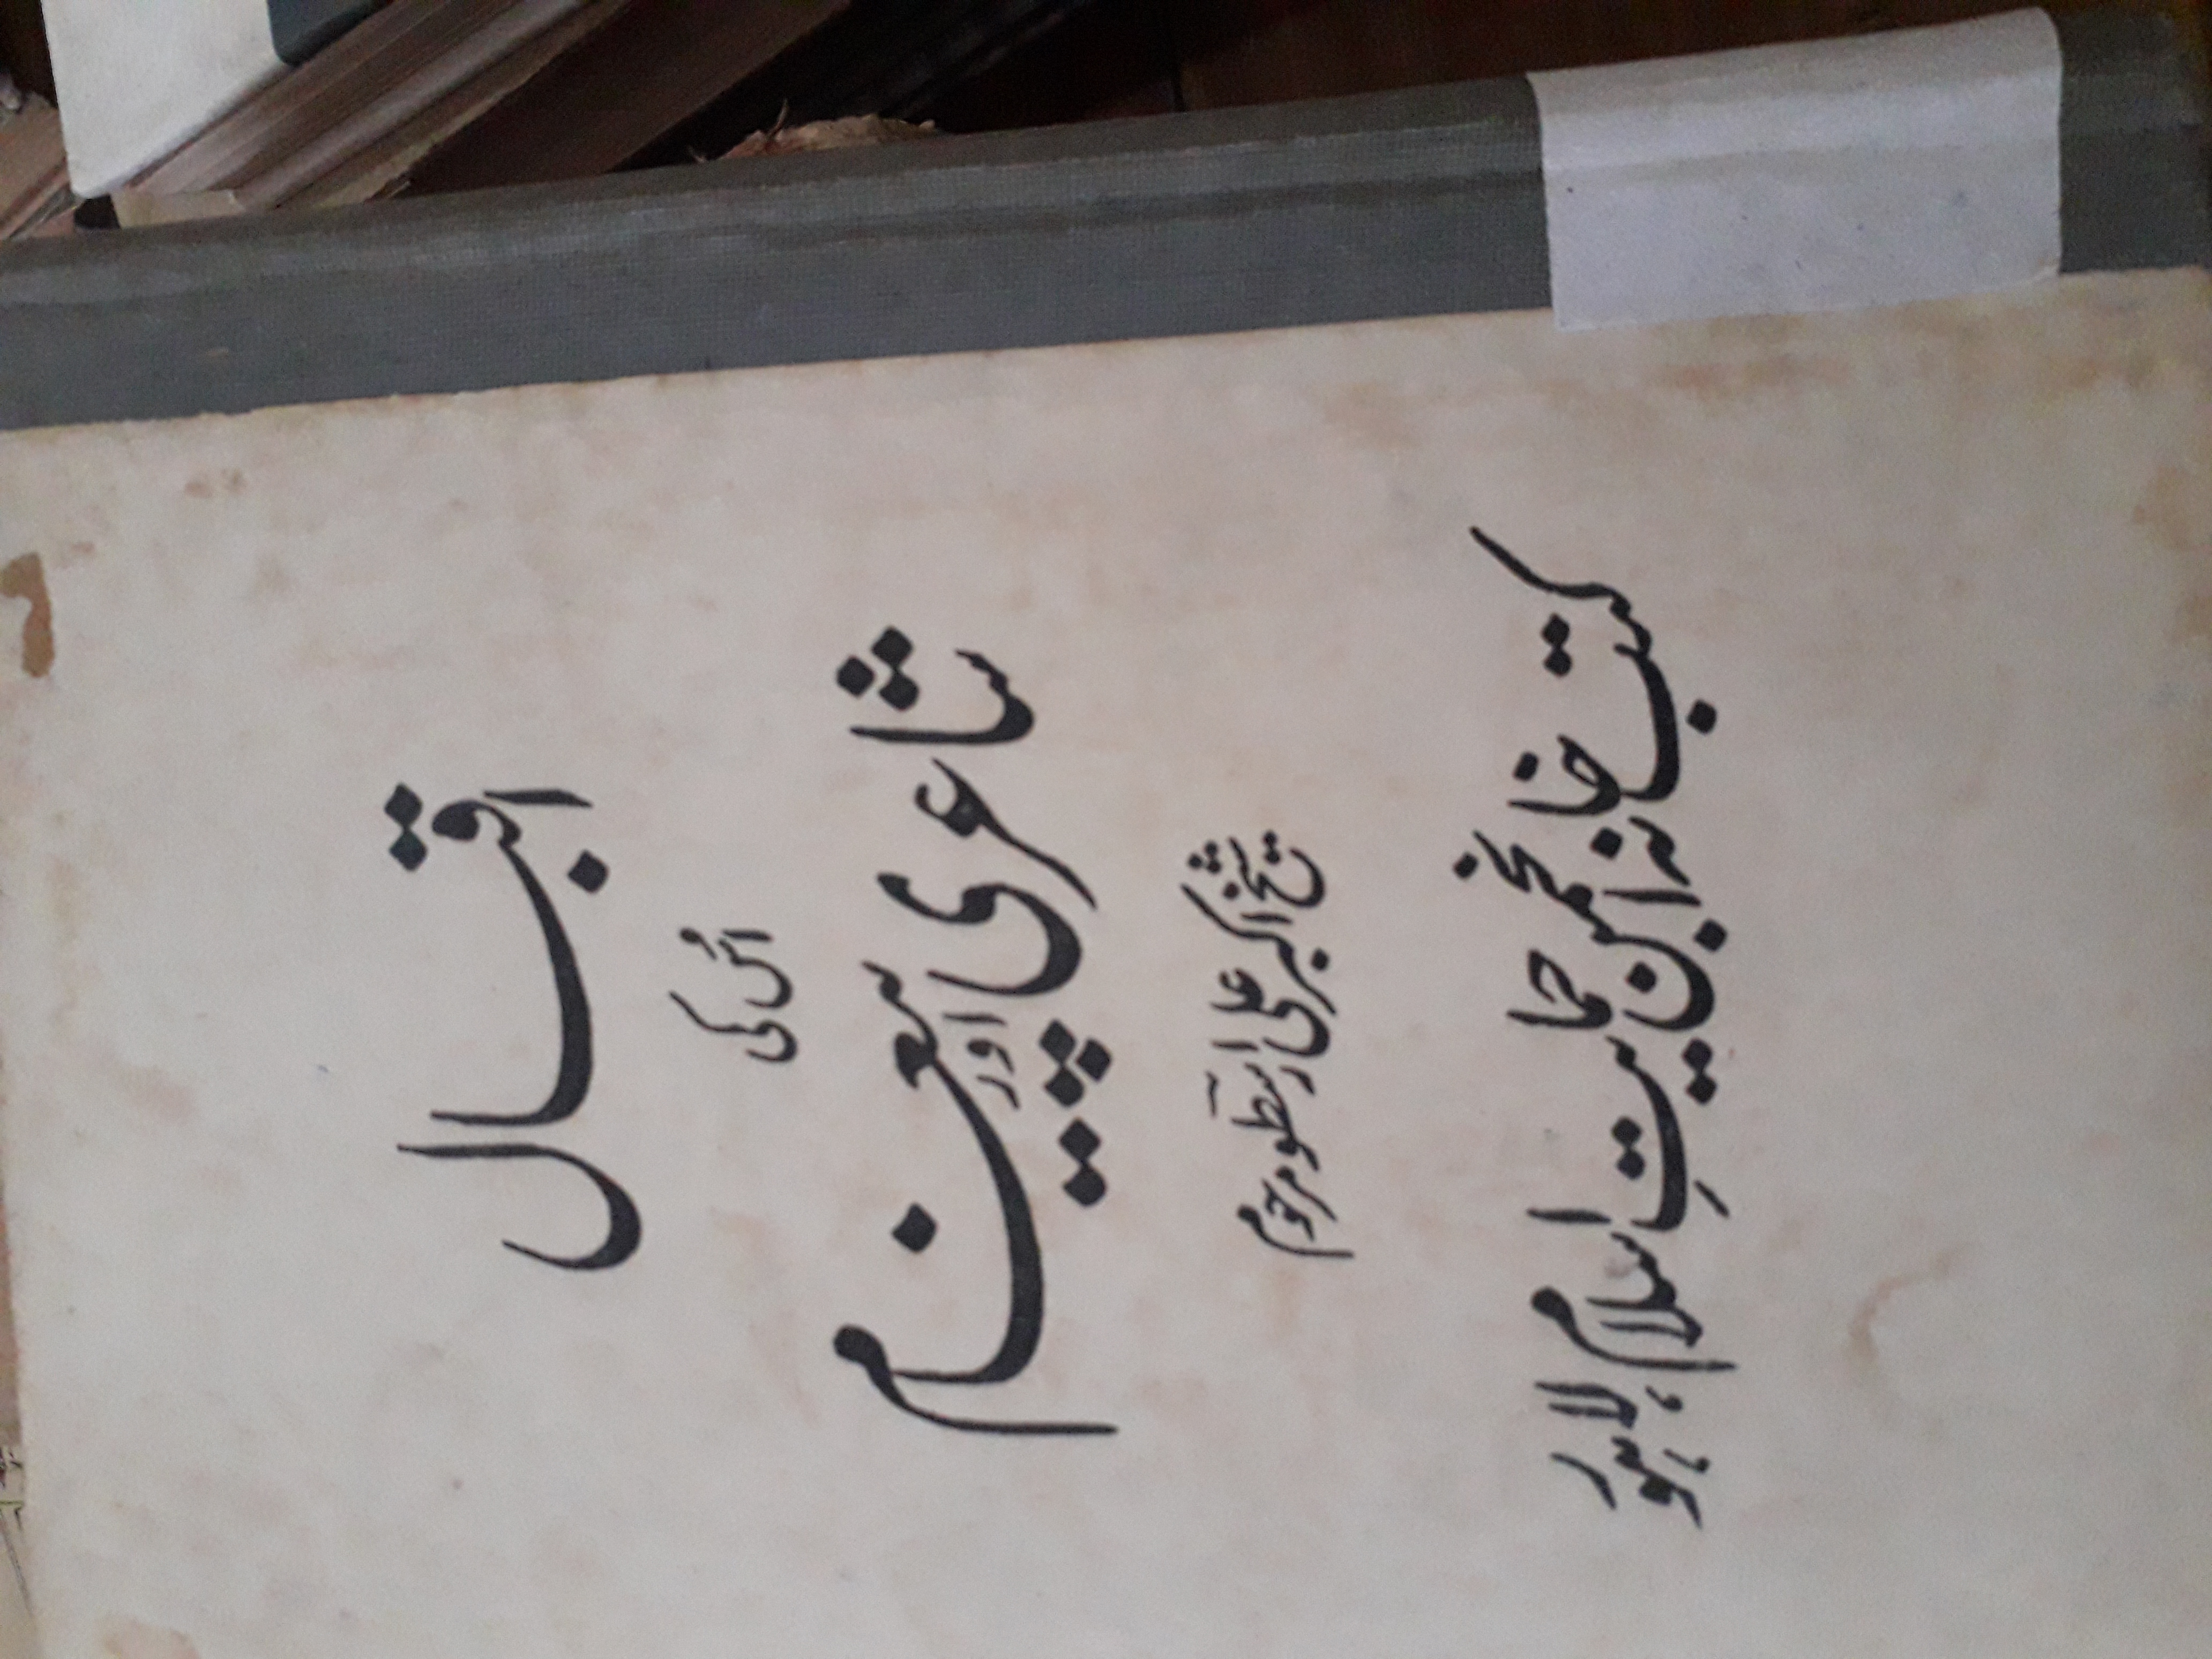 اقبال
اُس کی
شاعری اور پیغام
شیخ اکبر علی ارسطو مرحوم
کتب خانہ انجمن حمایتِ اسلام لاہور